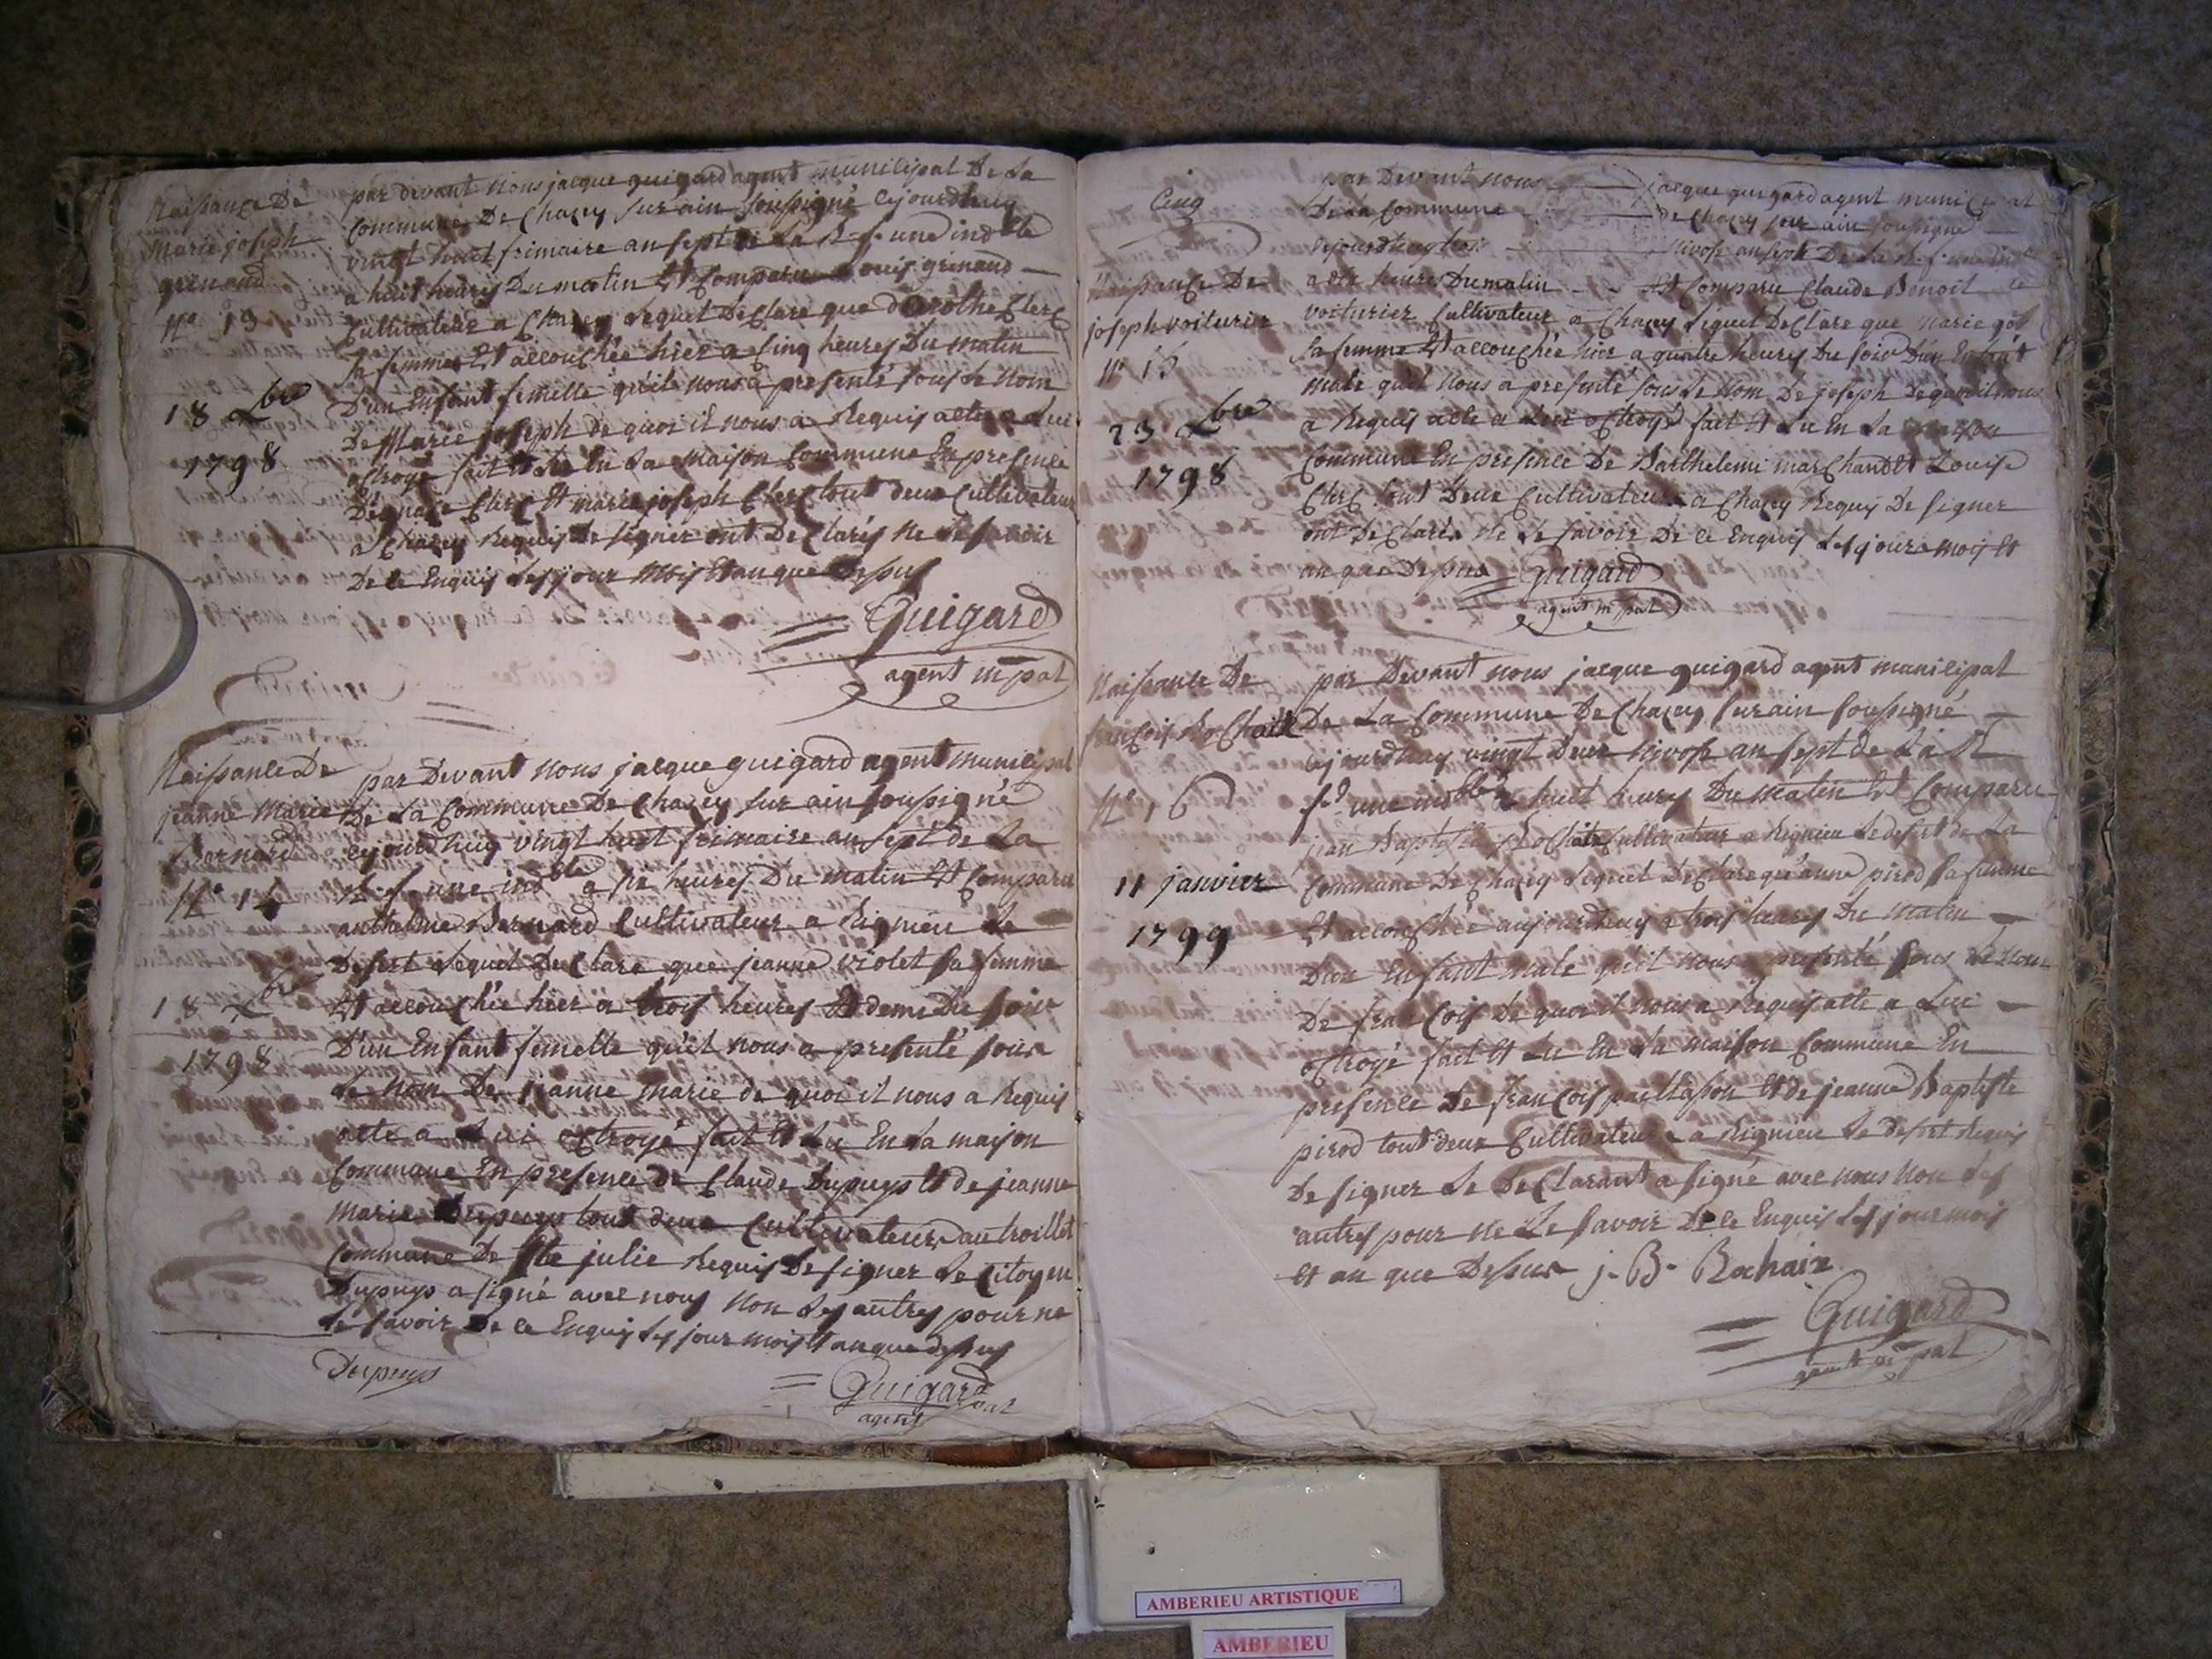 Naissance De
marie joseph
grenaud
N° 13
18 Xbre
1798
par devant nous jacque guigard agent municipal De La
Commune De Chazey sur ain soussigné Cejourdhuy
vingt huit frimaire an sept de La R. f. une ind ble
a huit heures Du matin Est Comparu Louis grenaud
Cultivateur a Chazey Lequel Declare que dorothe Clerc
sa femme Est accouchée hier a Cinq heures Du matin
D'un Enfant femelle qu'il nous a presenté sous Le Nom
De Marie joseph de quoi il nous a Requis acte a Lui
octroyé fait et Lu En La Maison Commune En presence
Clerc Et marie joseph Clerc tout deux Cultivateur
a Chazey Requis De signer ont Declarés Ne Le savoir
De Ce Enquis Les jour Mois Et an que Dessus
Guigard
agent m pal
Naissance De
jeanne Marie
Bernard
N° 14
18 Xbre
1798
par Devant Nous jacque guigard agent municipal
De La Commune De Chazey sur ain soussigné
Cejourdhuy vingt huit frimaire an sept de La
R. f. une ind ble a six heures Du matin Est Comparu
anthelme Bernard Cultivateur a Rignieu Le
Desert Lequel Declare que jeanne violet sa femme
Est accouchée hier a trois heures Et demi Du soir
D'un Enfant femelle qu'il nous a presenté sous
Le Nom De jeanne marie de quoi il nous a Requis
acte a Lui octroyé fait Et Lu En La maison
Commune En presence de Claude Dupuys Et de jeanne
marie Dupuys tout deux Cultivateur au troillet
Commune De Ste julie Requis De signer Le Citoyen
Dupuys a signé avec nous Non Les autres pour ne
Le savoir De Ce Enquis Les jour mois Et an que dessus
Dupuys
Guigard
agent pal
Cinq
Naissance De
joseph voiturier
N° 15
23 Xbre
1798
par Devant nous jacque guigard agent municipal
De La Commune de Chazey sur ain soussigné
Cejourdhuy trois nivose an sept De La R. f. une ind
a heures Du matin Est Comparu Claude Benoit
voiturier Cultivateur a Chazey Lequel Declare que Marie
sa femme Est accouchée hier a quatre heures Du soir D'un Enfant
male qu'il Nous a presenté sous Le Nom De joseph De quoi il nous
a Requis acte a Lui octroyé fait Et Lu En La maison
Commune En presence De Barthelemi marchand Et Louise
Clerc tout Deux Cultivateur a Chazey Requis De signer
ont Declarés Ne Le savoir De Ce Enquis Les jour mois Et
an que Dessus Guigard
agent m pal
Naissance De
francois Rochaix
N° 16
11 janvier
1799
par Devant nous jacque guigard agent municipal
De La Commune De Chazey sur ain soussigné
Cejourdhuy vingt Deux Nivose an sept de La R
fs une ind ble a huit heures Du Matin Est Comparu
jean Baptiste Rochaix Cultivateur a Rignieu Le desert de La
Commune De Chazey Lequel Declare qu'anne pirod sa femme
Est accouchée aujourdhuy a trois heures Du Matin
D'un Enfant Male qu'il nous a presenté sous Le Nom
De francois De quoi il nous a Requis acte a Lui
octroyé fait Et Lu En La maison Commune En
presence De francois paillasson Et de jeanne Baptiste
pirod tout deux Cultivateur a Rignieu Le desert Requis
De signer Le Declarant a signé avec nous Non Les
autres pour Ne Le savoir De Ce Enquis Les jour mois
Et an que Dessus j. B. Rochaix
Guigard
agent m pal
AMBERIEU ARTISTIQUE
AMBERIEU